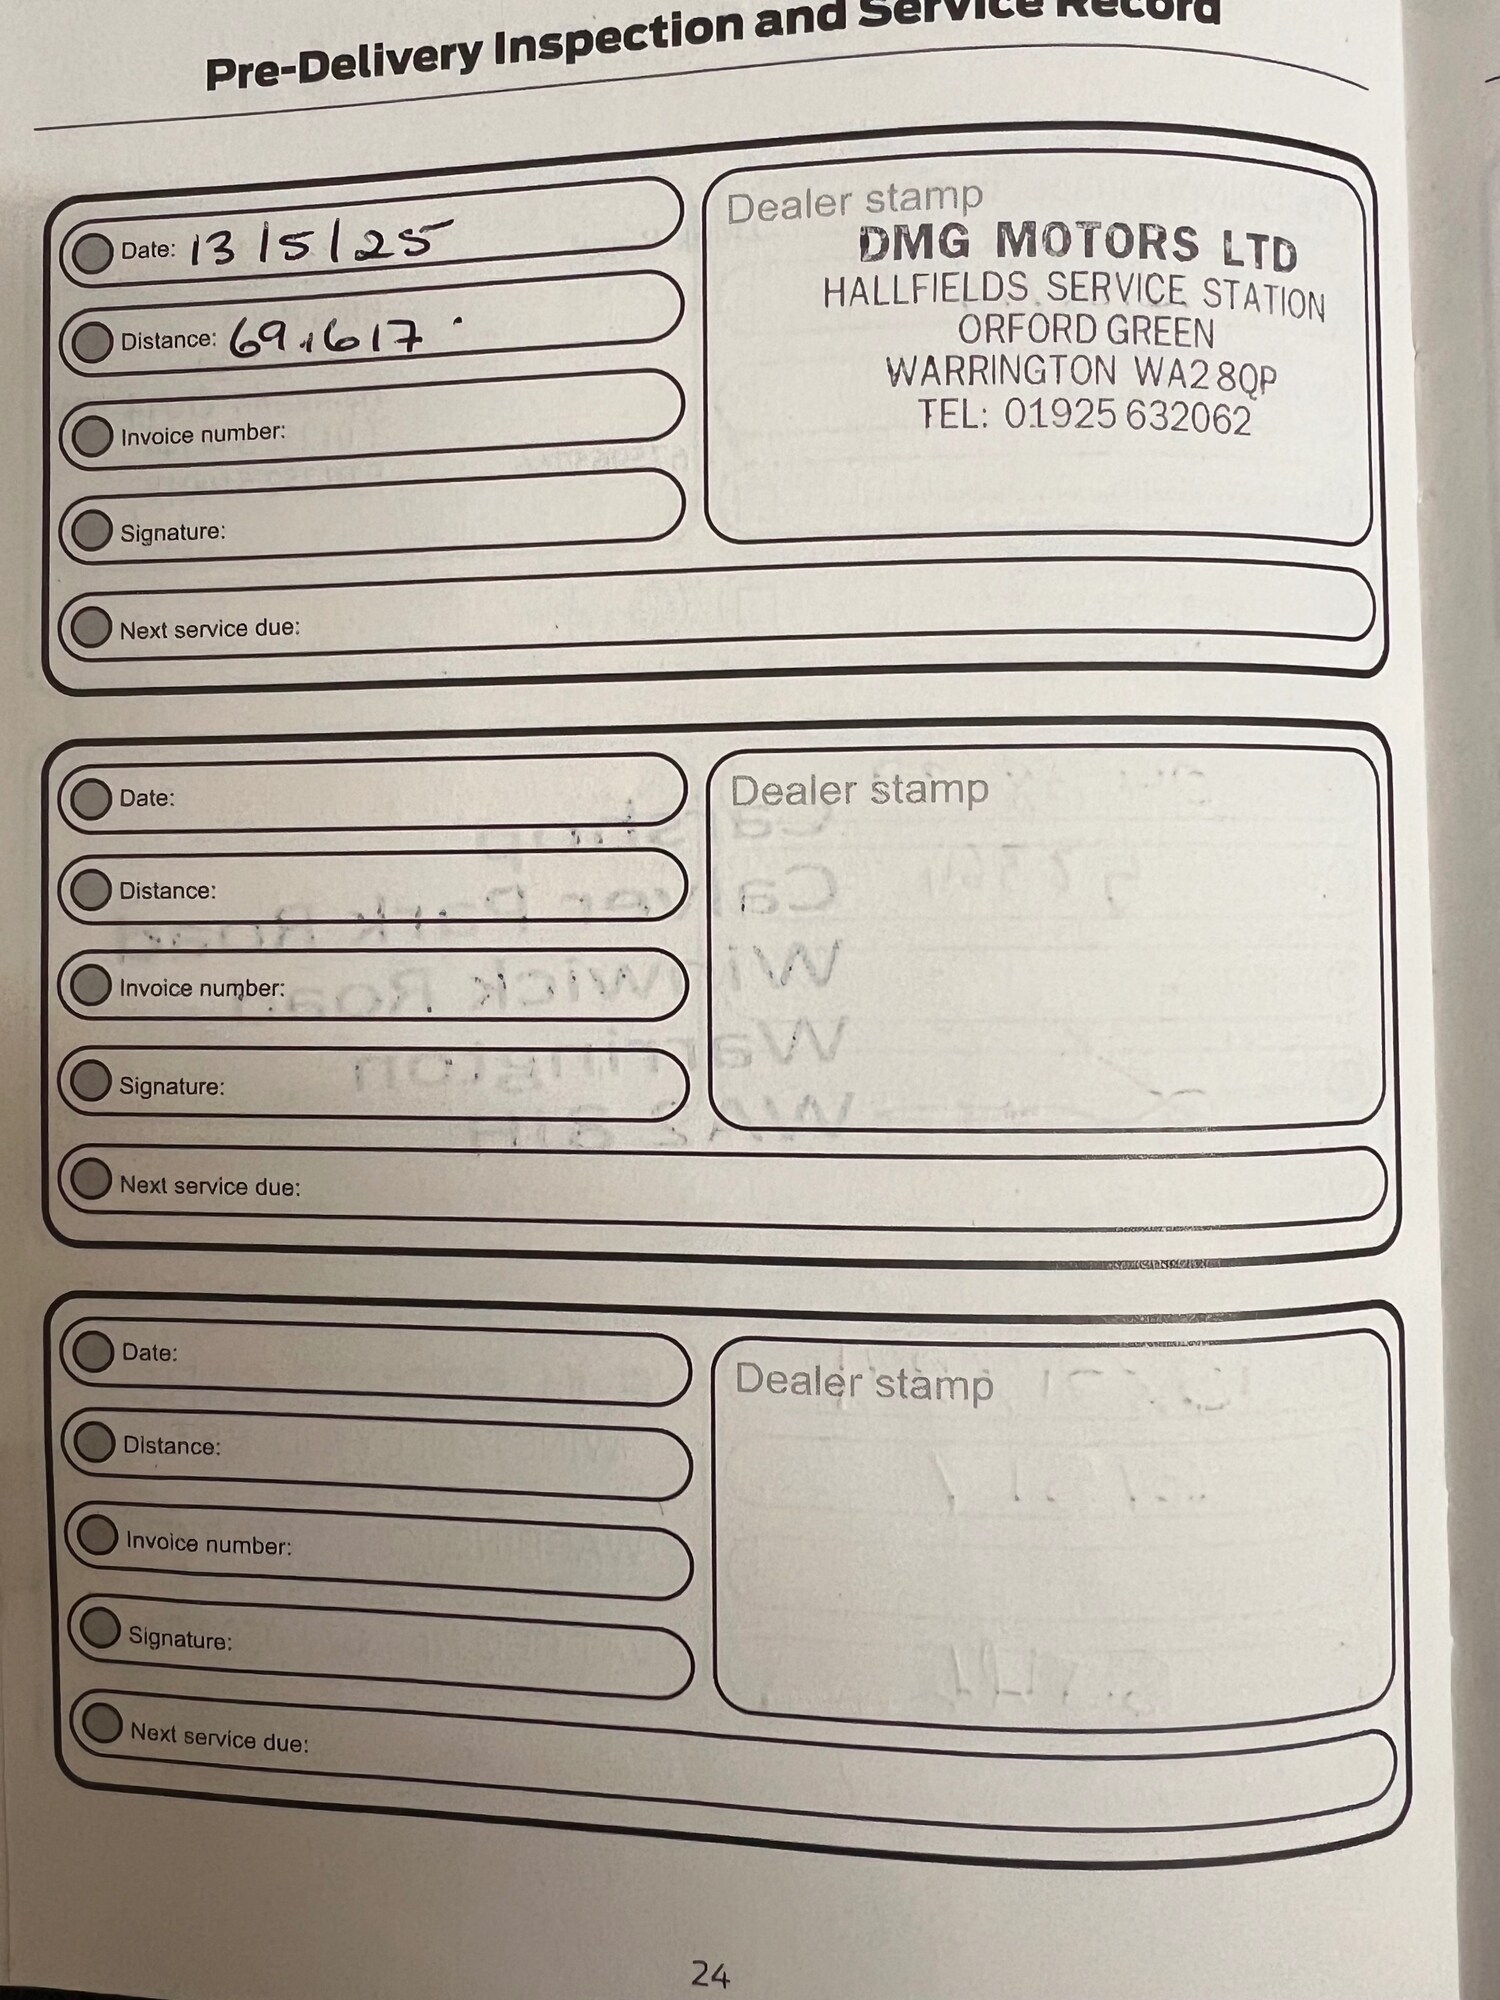 Pre-Delivery Inspection and Service Record
Date: 13/5/25
Distance: 69,617.
Invoice number:
Signature:
Next service due:
Dealer stamp
DMG MOTORS LTD
HALLFIELDS SERVICE STATION
ORFORD GREEN
WARRINGTON WA2 8QP
TEL: 01925 632062
Date:
Distance:
Invoice number:
Signature:
Next service due:
Dealer stamp
Date:
Distance:
Invoice number:
Signature:
Next service due:
Dealer stamp
24